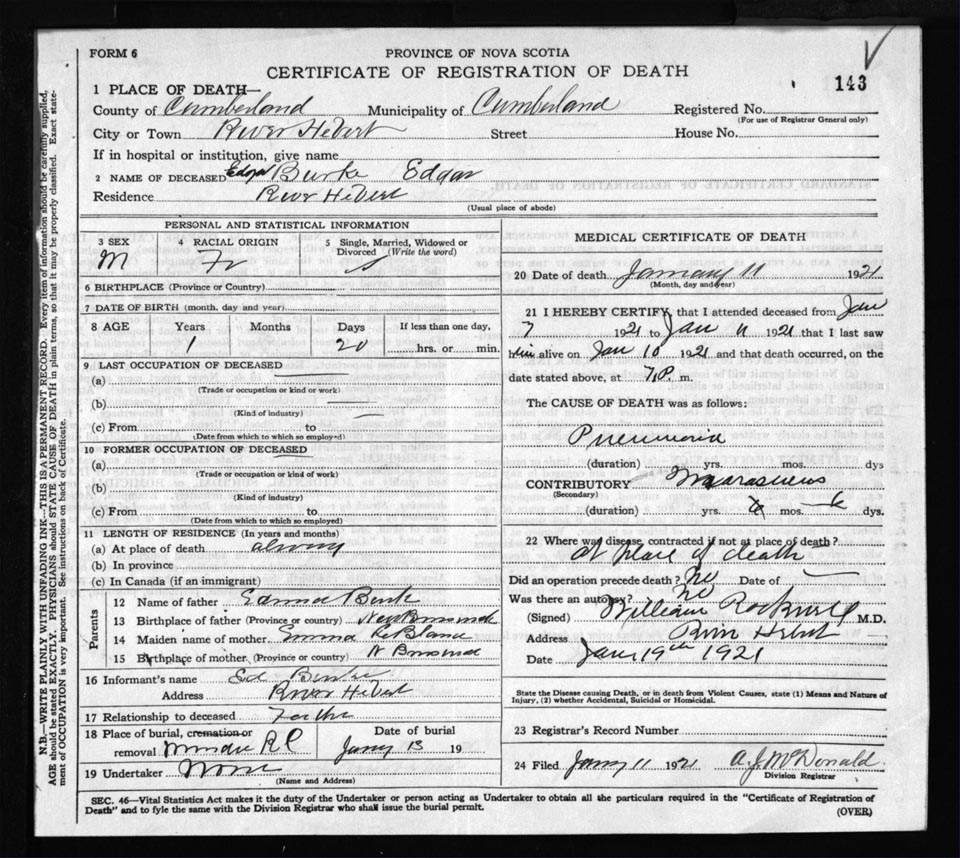 FORM 6
PROVINCE OF NOVA SCOTIA
CERTIFICATE OF REGISTRATION OF DEATH
143
1 PLACE OF DEATH—
County of Cumberland Municipality of Cumberland Registered No.
(For use of Registrar General only)
City or Town River Hebert Street House No.
If in hospital or institution, give name
2 NAME OF DECEASED Edgar Burke Edgar
Residence River Hebert
(Usual place of abode)
PERSONAL AND STATISTICAL INFORMATION
3 SEX 4 RACIAL ORIGIN 5 Single, Married, Widowed or Divorced (Write the word)
M Fr S
6 BIRTHPLACE (Province or Country)
7 DATE OF BIRTH (month, day and year)
8 AGE Years Months Days If less than one day,
1 20 hrs. or min.
9 LAST OCCUPATION OF DECEASED
(a)
(Trade or occupation or kind or work)
(b)
(Kind of industry)
(c) From to
(Date from which to which so employed)
10 FORMER OCCUPATION OF DECEASED
(a)
(Trade or occupation or kind of work)
(b)
(Kind of industry)
(c) From to
(Date from which to which so employed)
11 LENGTH OF RESIDENCE (In years and months)
(a) At place of death always
(b) In province
(c) In Canada (if an immigrant)
Parents
12 Name of father Burk
13 Birthplace of father (Province or country) New Brunswick
14 Maiden name of mother Emma LeBlanc
15 Birthplace of mother (Province or country) N Brunswick
16 Informant's name Ed Burke
Address River Hebert
17 Relationship to deceased Father
18 Place of burial, cremation or Date of burial
removal Minudie R C Jany 13 19
19 Undertaker None
(Name and Address)
MEDICAL CERTIFICATE OF DEATH
20 Date of death January 11 1921
(Month, day and year)
21 I HEREBY CERTIFY, that I attended deceased from Jan
7 1921 to Jan 11 1921 that I last saw
him alive on Jan 10 1921 and that death occurred, on the
date stated above, at 7 P. m.
The CAUSE OF DEATH was as follows:
Pneumonia
(duration) yrs. mos. dys
CONTRIBUTORY Marasmus
(Secondary)
(duration) yrs. mos. 6 dys.
22 Where was disease, contracted if not at place of death?
at place of death
Did an operation precede death? No Date of
Was there an autopsy? No
(Signed) William Rockwell M.D.
Address River Hebert
Date Jany 19th 1921
State the Disease causing Death, or in death from Violent Causes, state (1) Means and Nature of
Injury, (2) whether Accidental, Suicidal or Homicidal.
23 Registrar's Record Number
24 Filed Jany 11 1921 A.J. McDonald
Division Registrar
SEC. 46—Vital Statistics Act makes it the duty of the Undertaker or person acting as Undertaker to obtain all the particulars required in the "Certificate of Registration of
Death" and to fyle the same with the Division Registrar who shall issue the burial permit.
(OVER)
N.B.—WRITE PLAINLY WITH UNFADING INK—THIS IS A PERMANENT RECORD. Every item of information should be carefully supplied,
AGE should be stated EXACTLY. PHYSICIANS should STATE CAUSE OF DEATH in plain terms, so that it may be properly classified. Exact state-
ment of OCCUPATION is very important. See instructions on back of Certificate.